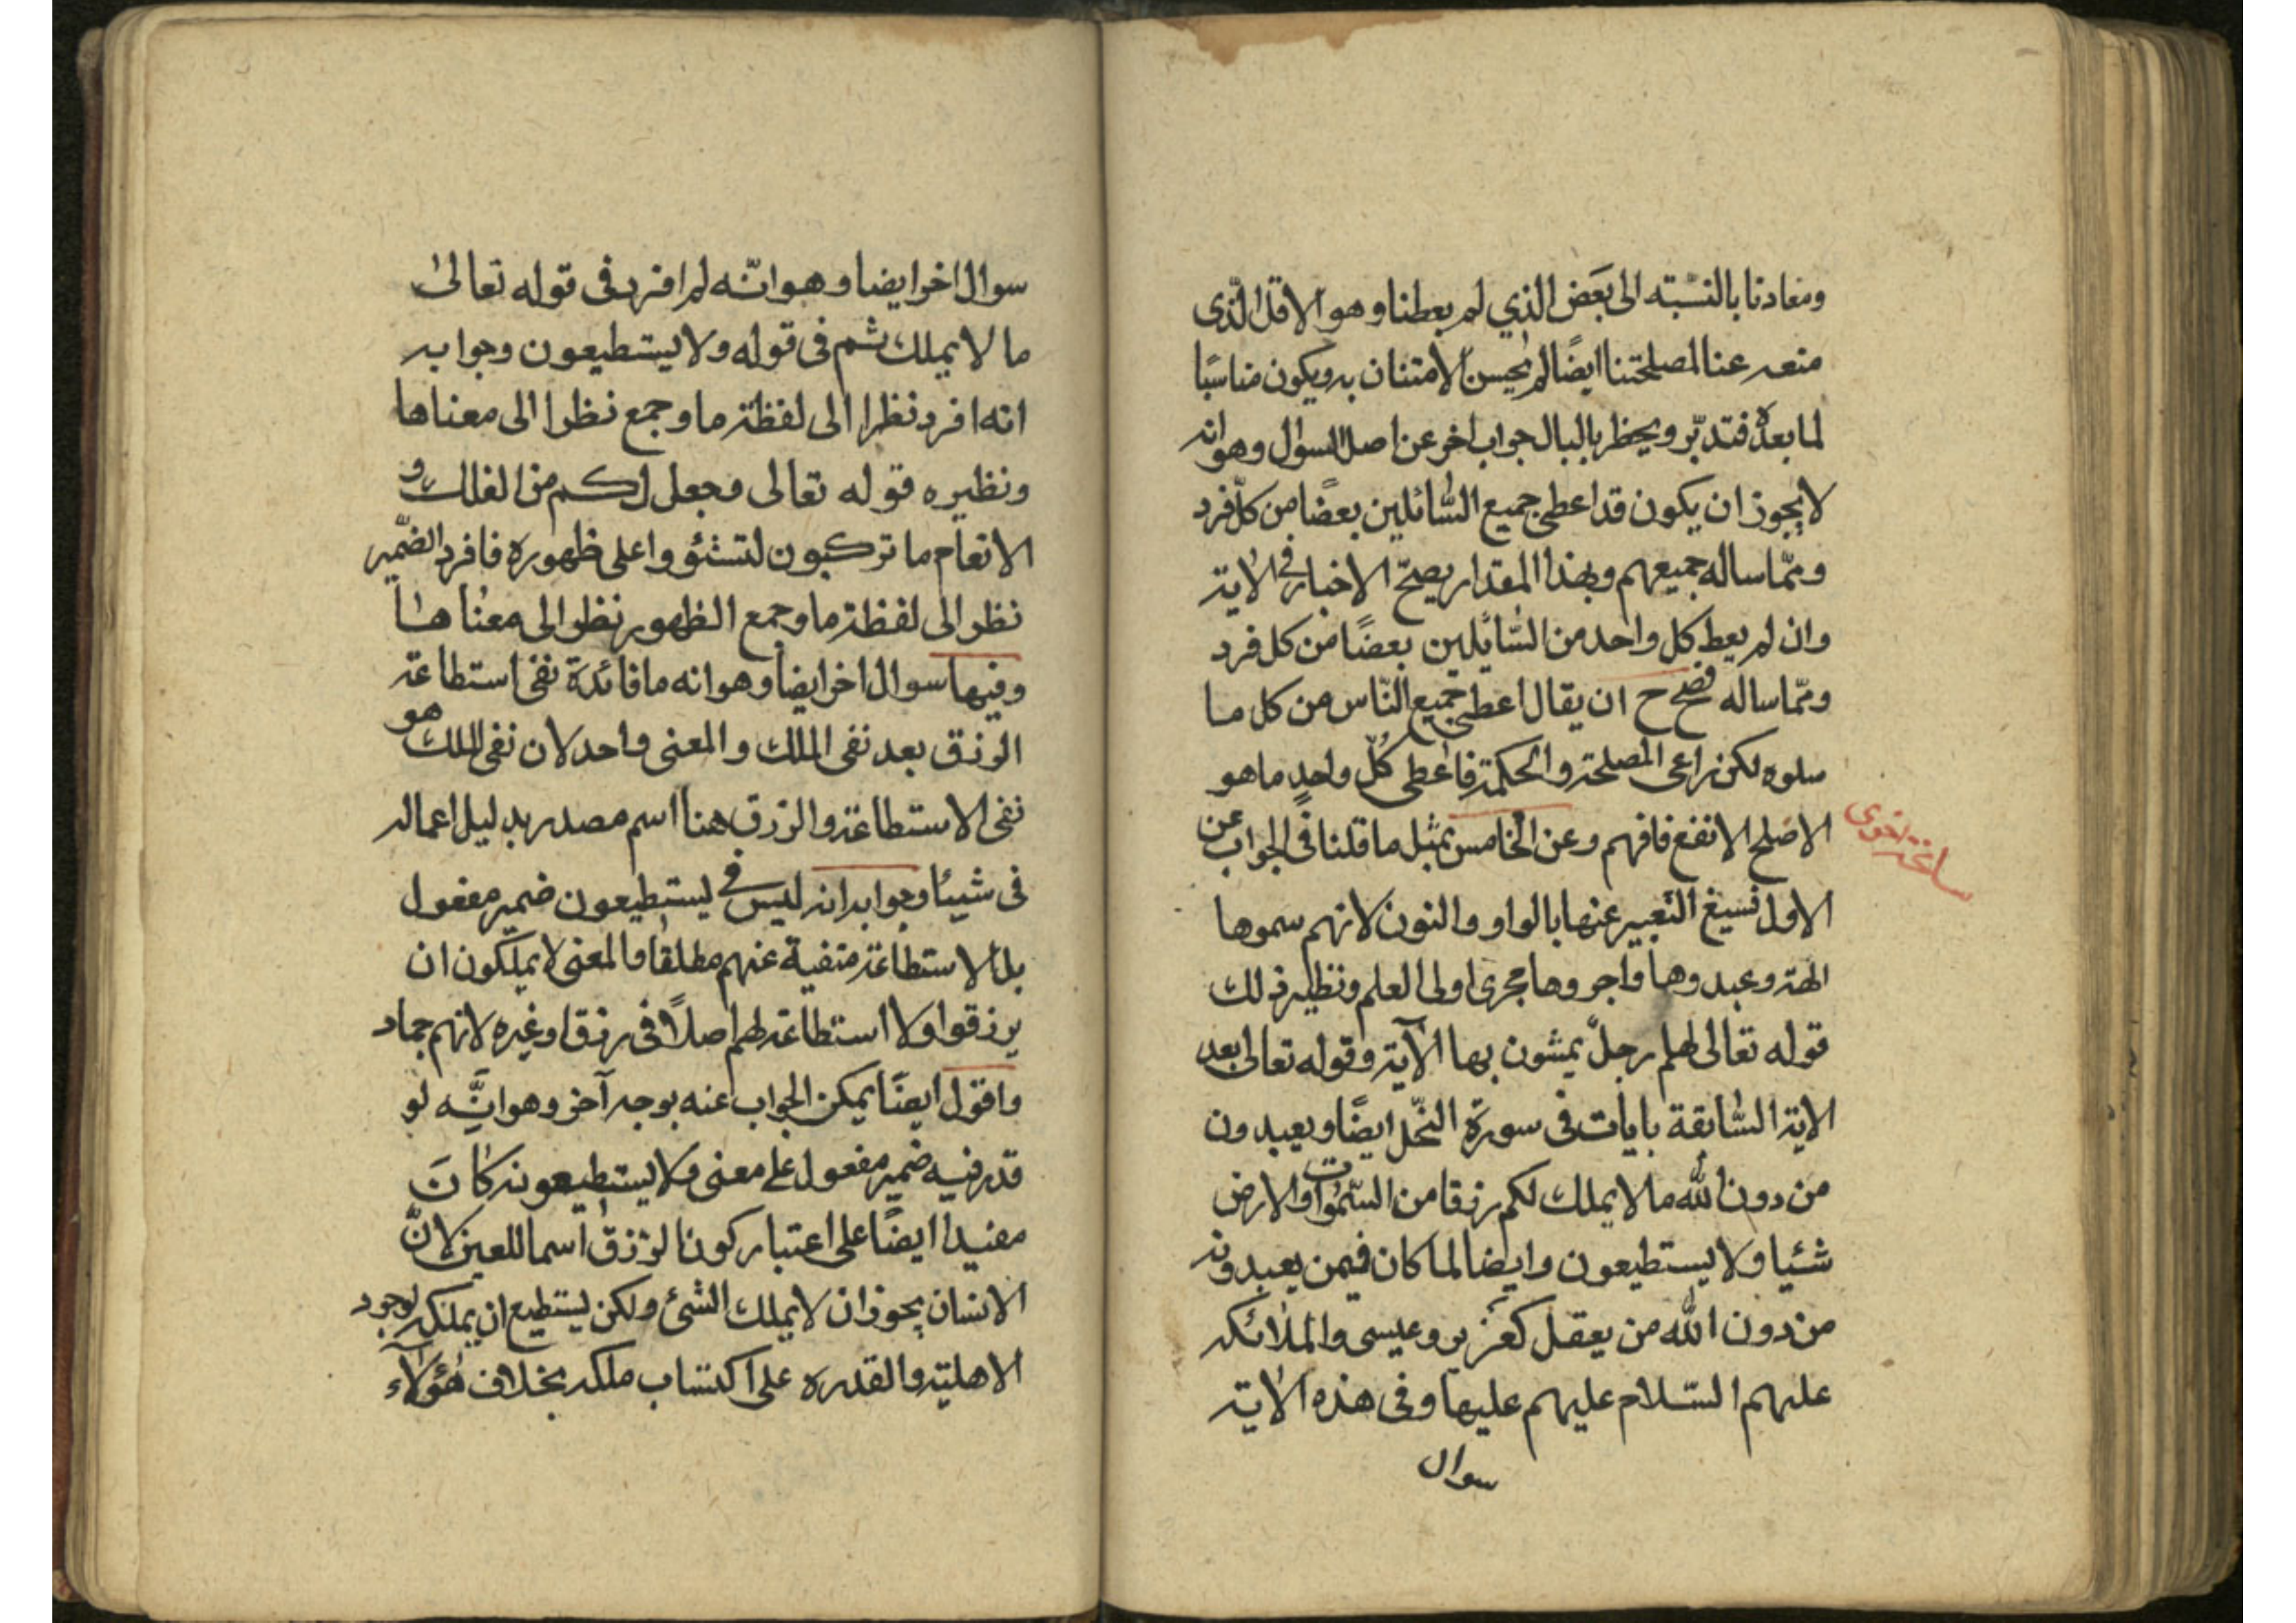 ومعادنا بالنسبته الى بَعَض الذي لم يعطنا وهو الاقل الّذى
منعه عنا لمصلحتنا ايضًا لم يحسن الامتنان به ويكون مناسبًا
لما بعده فتدبّر ويخطر بالبال جواب اخر عن اصل السوال وهو انه
لا يجوز ان يكون قد اعطى جميع السّائلين بعضًا من كلّ فرد
وممّا ساله جميعهم وبهذا المقدار يصحّ الاخبار فى الاية
وان لم يعط كل واحد من السّائلين بعضًا من كل فرد
وممّا ساله فصح ح ان يقال اعطى جميع النّاس من كل ما
سلوه لكن راعى المصلحة والحكمة فاعطى كُلّ واحدٍ ما هو
الاصلح الانفع فافهم وعن الخامس بمثل ما قلنا فى الجواب عن
الاول فسيغ التّعبير عنها بالواو والنون لانهم سموها
الهة وعبدوها واجروها مجرى اولى العلم ونظير ذلك
قوله تعالى الهم رجلٌ يمشون بها الآية وقوله تعالى بعد
الاية السّابقة بايات فى سورة النّحل ايضًا ويعبدون
من دون الله ما لا يملك لكم رزقا من السّموات والارض
شئيا ولا يستطيعون وايضا لما كان فيمن يعبدونه
من دون الله من يعقل كعزير وعيسى والملائكه
عليهم السّلام عليهم عليها وفى هذه الاية
سوال
اخرى
سوال اخر ايضا وهو انّه لم افرد فى قوله تعالىٰ
ما لا يملك ثم فى قوله ولا يستطيعون وجوابه
انه افرد نظرا الى لفظة ما وجمع نظرا الى معناها
ونظيره قوله تعالى وجعل لكم من الفلك و
الانعام ما تركبون لتستؤوا على ظهوره فافرد الضّمير
نظر الى لفظة ما وجمع الظهور نظر الى معناها
وفيها سوال اخر ايضا وهو انه ما فائدة نفى استطاعة
الرزق بعد نفى الملك والمعنى واحد لان نفى الملك هو
نفى الاستطاعة والرزق هنا اسم مصدر بدليل اعماله
فى شيئا وجوابه انه ليس فى يستطيعون ضمير مفعول
بل الاستطاعة منفية عنهم مطلقا والمعنى لا يملكون ان
يرزقوا ولا استطاعة لهم اصلاً فى رزق او غيره لانهم جماد
واقول ايضًا يمكن الجواب عنه بوجه آخر وهو انَّه لو
قدر فيه ضمير مفعول على معنى ولا يستطيعونه كان
مفيدا ايضًا على اعتبار كون الرزق اسما للعين لانّ
الانسان يجوز ان لا يملك الشئ ولكن يستطيع ان يملكه لوجود
الاهلية والقدره على اكتساب ملكه بخلاف هٰؤلآء